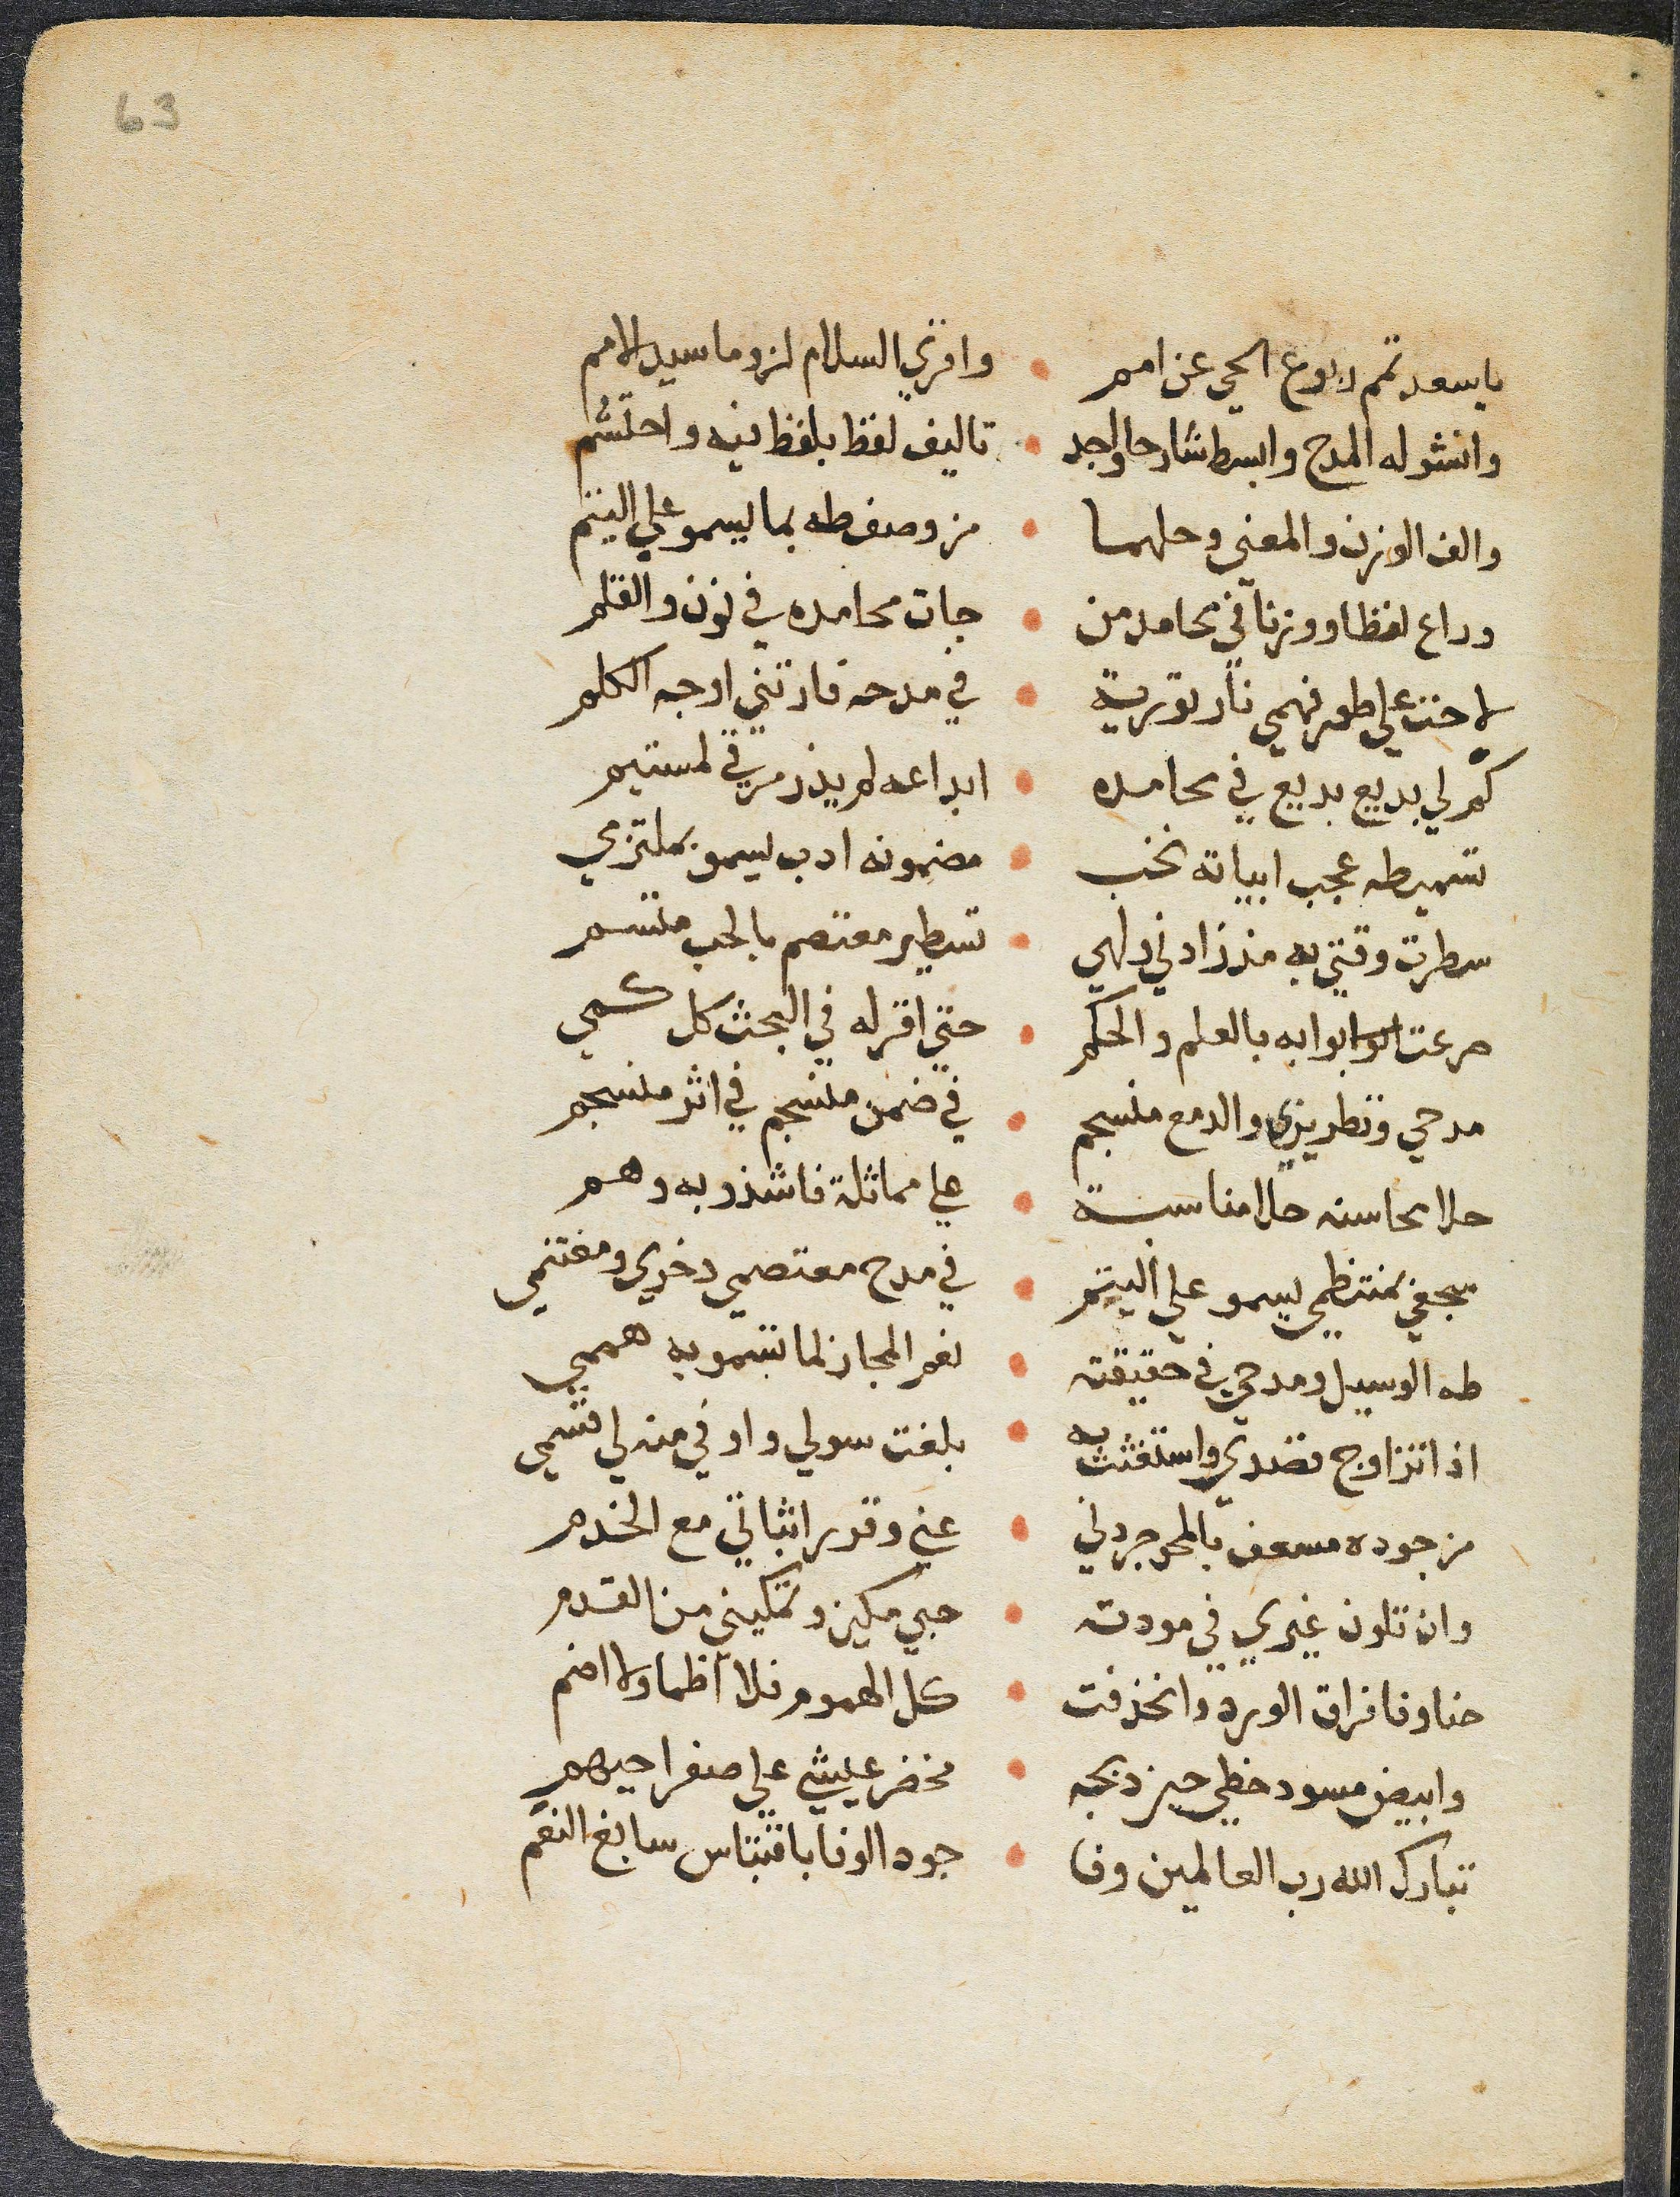 63
ياسعد تمم ربوع الحي عن امم • واقري السلام لزوما سيد الامم
وانشو له المدح وابسط شارحا واجد • تاليف لفظ بلفظ فيه واحتشم
والف الوزن والمعني وحلهما • من وصف طه بما يسمو علي اليتم
وراع لفظا ووزنا في محامد من • جات محامده في نون والقلم
لاحت علي طور فهمي نار تورية • في مدحه فارتني اوجه الكلم
كم لي بديع بديع في محامده • ابداعه لم يذر مرقي لمستيم
تسميطه عجب ابياته نخب • مضمونه ادب يسمو بملتزمي
سطرت وقتي به مذ زادني ولهي • تسطير معتصم بالحب ملتسم
صرعت ابوابه بالعلم والحكم • حتي اقر له في البحث كل كمي
مدحي وتطريزي والدمع منسجم • في ضمن منسجم في اثر منسجم
حلا محاسنه حلا مناسبة • علي مماثلة فاشذو به وهم
سجفي بمنتظمي يسمو علي اليتم • في مدح معتصمي دخري ومغتنمي
طه الوسيل ومدحي في حقيقته • نعم المجاز لما تسمو به هممي
اذا تزاوج قصدي واستغثت به • بلغت سولي واوفي منه لي قسمي
من جوده مسعف بالمحو جردني • عني وقرر اثباتي مع الخدم
وان تلون غيري في مودته • حبي مكين وتمكيني من القدم
حنا وفا فراق الورد وانحذفت • كل الهموم فلا اظما ولا اضم
وابيض مسود حظي حين دبجه • مخضر عيشي علي صفرا حيهم
تبارك الله رب العالمين وفا • جود الوفا باقتباس سابغ النعم